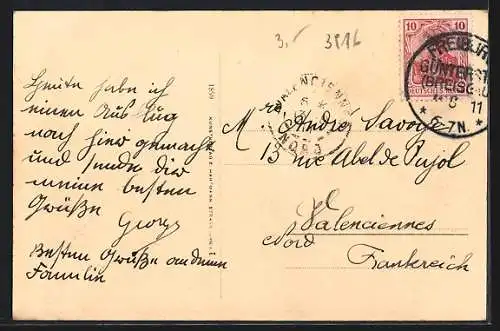 3.- 3816
10 10
DEUTSCHES
FREIBURG
GÜNTERST
(BREISGAU
11
* 6-7N. *
VALENCIENNES
NORD
Heute habe ich
einen Ausflug
nach hier gemacht
und sende dir
meine besten
Grüße
Georg
Besten Grüße an deine
Familie
M. André Savoye
13 rue Abel de Pujol
Valenciennes
Nord
Frankreich